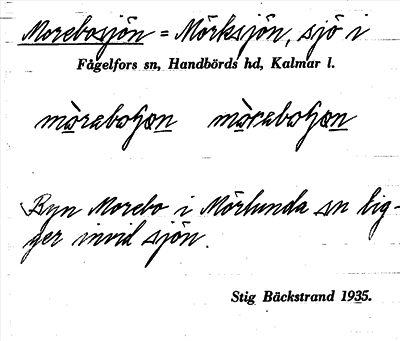 Morebosjön = Mörksjön, sjö i
Fågelfors sn, Handbörds hd, Kalmar l.
Byn Morebo i Mörlunda sn lig-
ger invid sjön.
Stig Bäckstrand 1935.